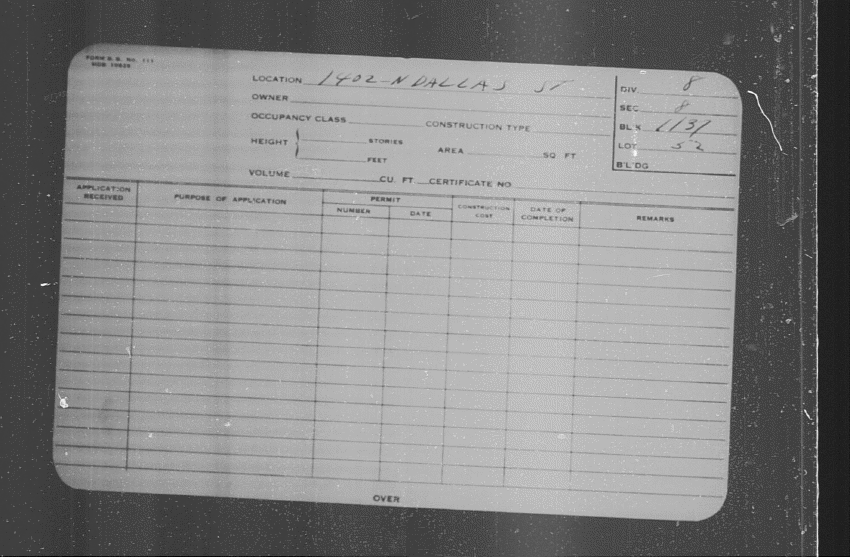 FORM D. G. No. 111
LOCATION 1402-N DALLAS ST
OWNER
OCCUPANCY CLASS CONSTRUCTION TYPE
HEIGHT STORIES AREA SQ FT
FEET
VOLUME CU. FT. CERTIFICATE NO.
DIV. 8
SEC 8
BLK 1137
LOT 52
B'LDG
APPLICATION RECEIVED PURPOSE OF APPLICATION PERMIT CONSTRUCTION COST DATE OF COMPLETION REMARKS
NUMBER DATE
OVER